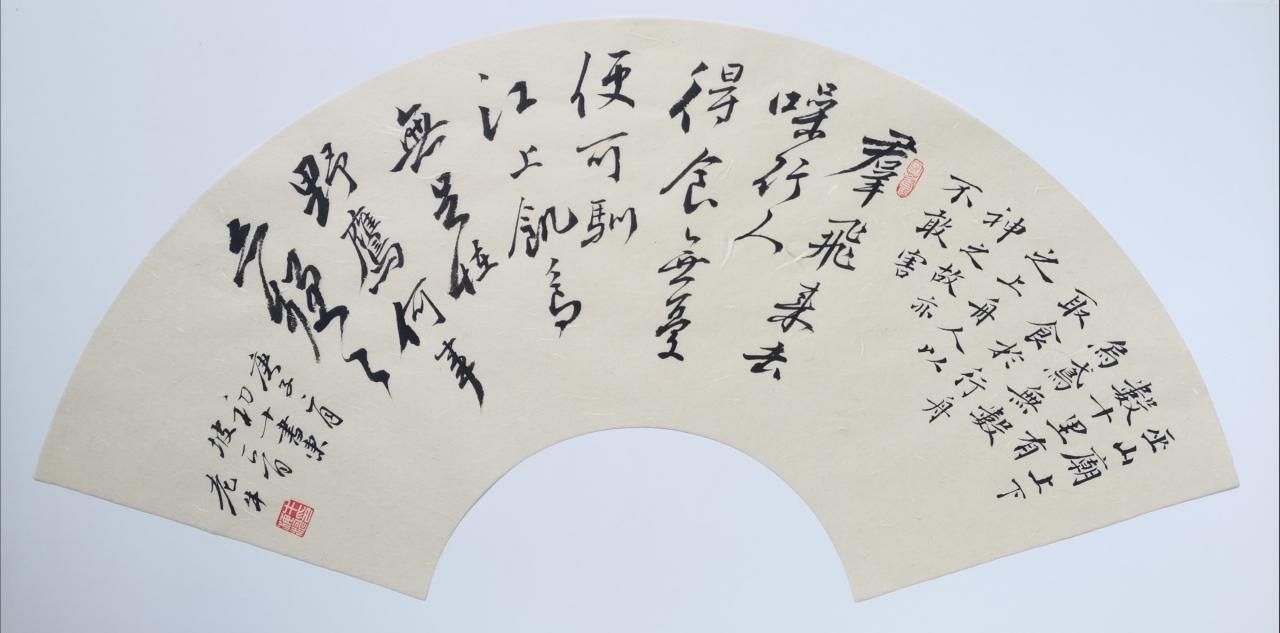 巫山廟上下
數十里有
烏鳶無數
取食於行舟
之上舟人以
神之故亦
不敢害
羣飛来去
噪行人
得食無憂
便可馴
江上飢烏
無足怪
野鷹何事
亦頻々
庚子 月
初十書東
坡
老